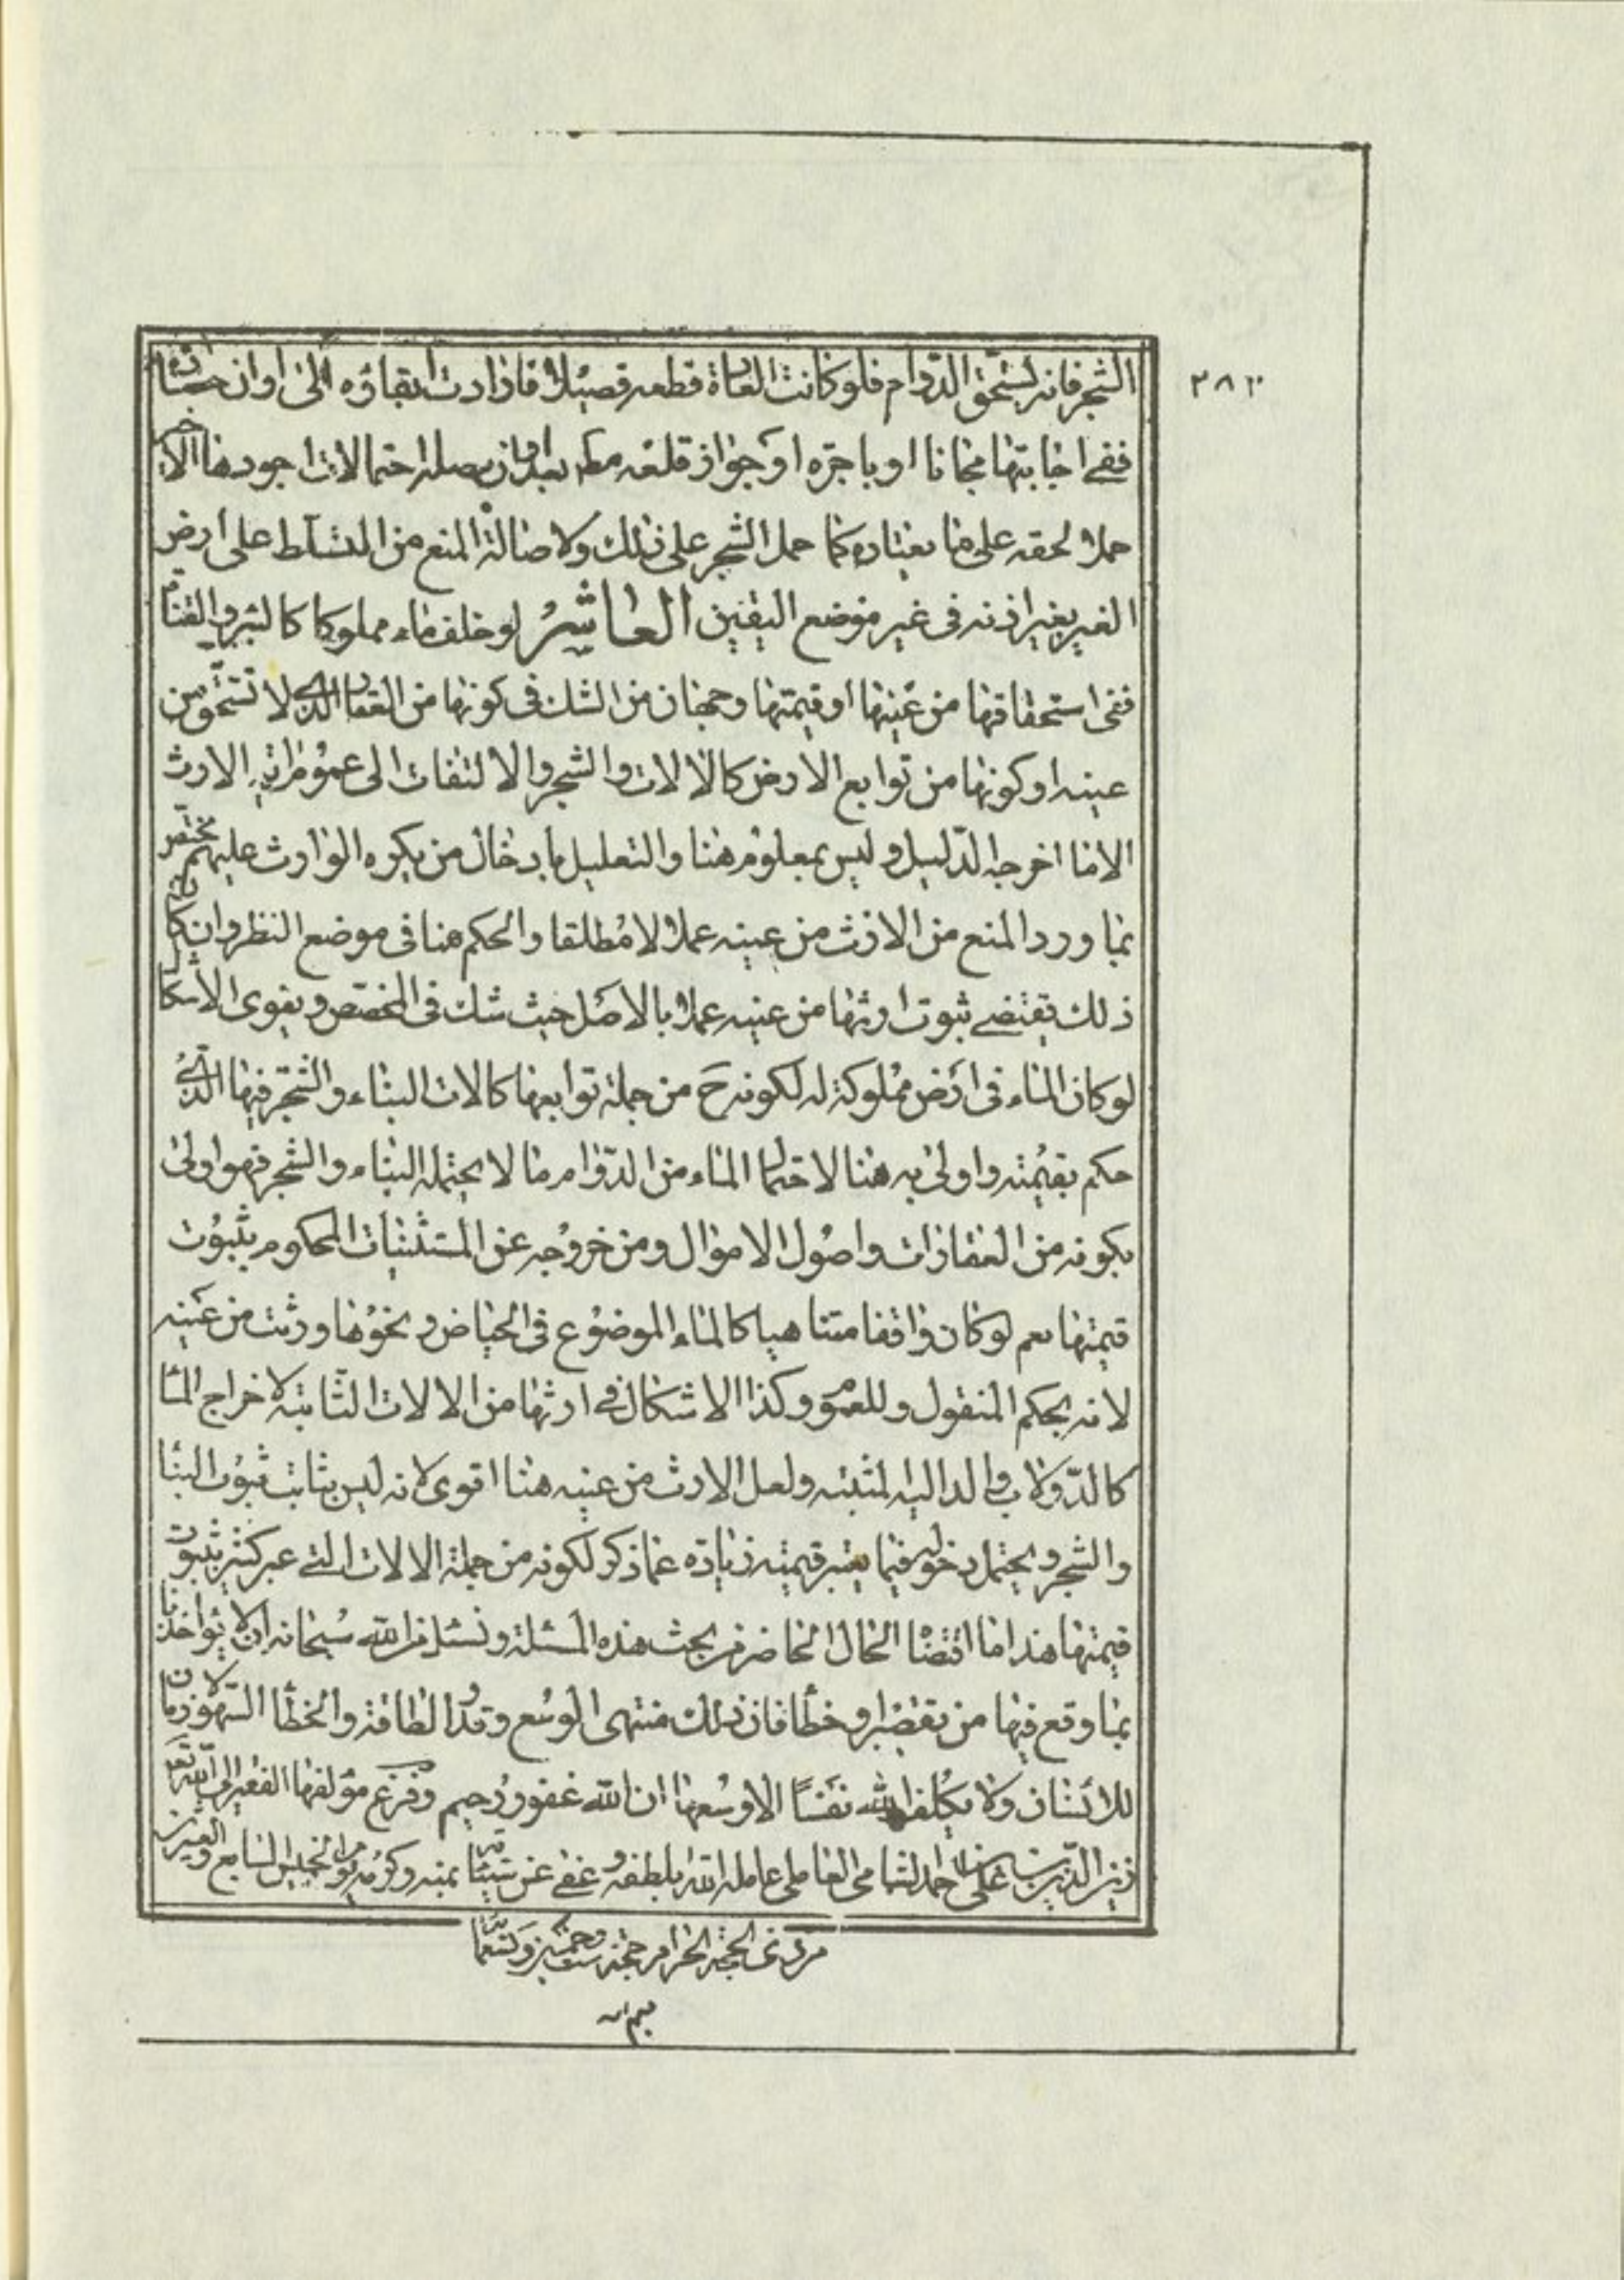 ٣٨٣
الشجر فانه يستحق الدوام فلو كانت العادة قطعه قصيلا فارادت ابقاؤه الى اوان حصاده
ففى اجابتها مجانا او باجرة او جواز قلعه مطم بعد اوان يصله احتمالات اجودها الاخير
حملا لحقه على ما يعتاده كما حمل الشجر على ذلك ولاصالة المنع من التسلط على ارض
الغير بغير اذنه فى غير موضع اليقين العاشر لو خلف ماء مملوكا كالبئر والقناة
ففى استحقاقها من عينها او قيمتها وجهان من الشك فى كونها من العقار الذى لا تستحق من
عينه او كونها من توابع الارض كالالات والشجر والالتفات الى عموم اية الارث
الا ما اخرجه الدليل وليس بمعلوم هنا والتعليل بادخال من يكره الوارث عليهم مختص
بما ورد المنع من الارث من عينه عملا لا مطلقا والحكم هنا فى موضع النظر وان كان
ذلك يقتضى ثبوت ارثها من عينه عملا بالاصل حيث شك فى المخصص ويقوى الاشكال
لو كان الماء فى ارض مملوكة له لكونه ح من جملة توابعها كالات البناء والشجر فيها الذى
حكم بقيمته واولى به هنا لاحتمال الماء من الدوام ما لا يحتمله البناء والشجر فهو اولى
بكونه من العقارات واصول الاموال ومن خروجه عن المستثنيات المحكوم بثبوت
قيمتها نعم لو كان واقفا متناهيا كالماء الموضوع فى الحياض ونحوها ورثت من عينه
لانه بحكم المنقول وللعموم وكذا الاشكال فى ارثها من الالات الثابتة لاخراج الماء
كالدولاب والدالية لمثبته ولعل الارث من عينه هنا اقوى لانه ليس بثابت ثبوت البناء
والشجر ويحتمل دخوله فيما يعتبر قيمته زيادة عما ذكر لكونه من جملة الالات التى عبر كثير بثبوت
قيمتها هذا ما اقتضاه الحال الحاضر من بحث هذه المسئلة ونسئل من الله سبحانه ان لا يؤاخذنا
بما وقع فيها من تقصير او خطأ فان ذلك منتهى الوسع وقدر الطاقة والخطأ والسهو لازمان
للانسان ولا يكلف الله نفسا الا وسعها ان الله غفور رحيم وفرغ مؤلفها الفقير الى الله تعالى
زين الدين بن على بن احمد الشامى العاملى عامله الله بلطفه وعفى عن سيئاته بمنه وكرمه يوم الخميس السابع والعشرين
من ذى الحجة الحرام حجة ست وخمسين وتسعمائة